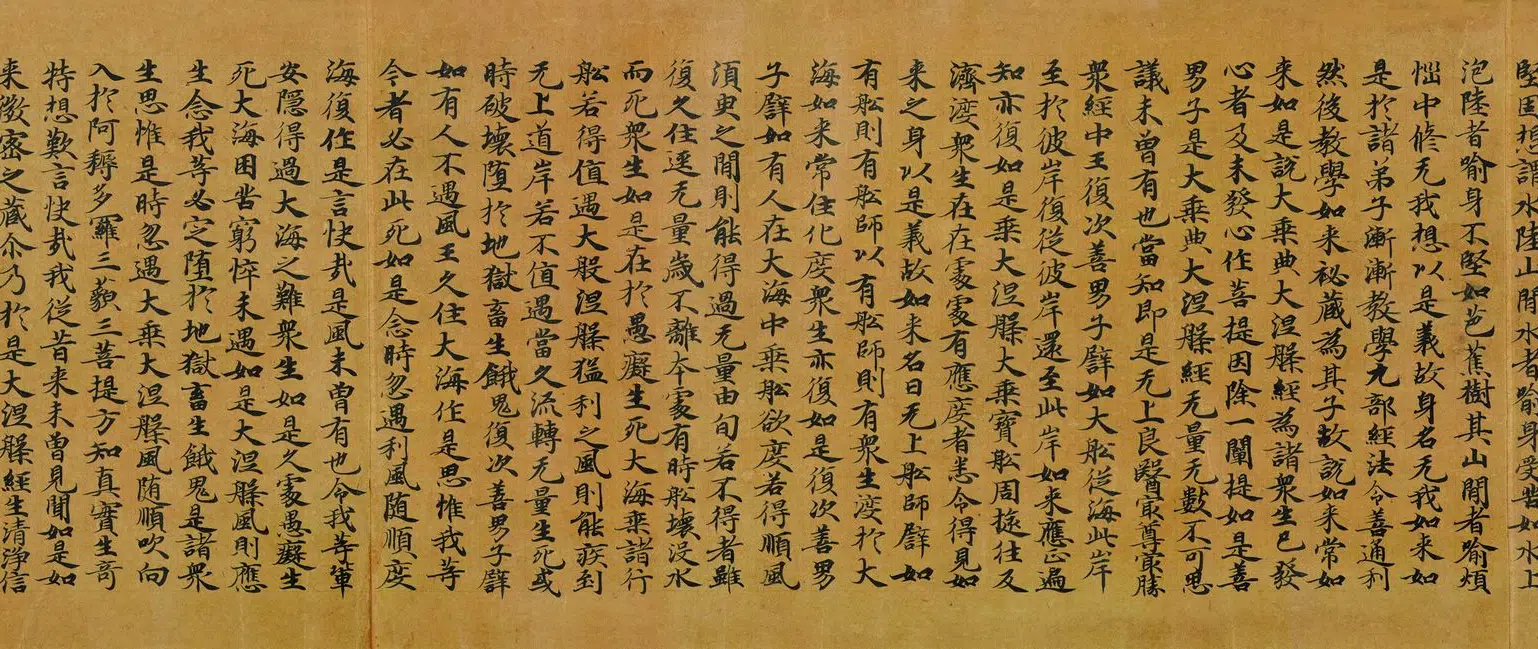 堅固想謂水陸山間水者喻身受苦如水上
泡陸者喻身不堅如芭蕉樹其山間者喻煩
惱中修无我想以是義故身名无我如来如
是於諸弟子漸漸教學九部經法令善通利
然後教學如来祕藏為其子故說如来常如
来如是說大乗典大涅槃經為諸衆生已發
心者及未發心作菩提因除一闡提如是善
男子是大乗典大涅槃經无量无數不可思
議未曽有也當知即是无上良醫㝡尊㝡勝
衆經中王復次善男子譬如大舩従海此岸
至於彼岸復従彼岸還至此岸如来應正遍
知亦復如是乗大涅槃大乗寳舩周旋往及
濟渡衆生在在處處有應度者悉令得見如
来之身以是義故如来名曰无上舩師譬如
有舩則有舩師以有舩師則有衆生渡於大
海如来常住化度衆生亦復如是復次善男
子譬如有人在大海中乗舩欲度若得順風
須臾之間則能得過无量由旬若不得者雖
復久住逕无量歳不離本處有時舩壊没水
而死衆生如是在於愚癡生死大海乗諸行
舩若得值遇大般涅槃猛利之風則能疾到
无上道岸若不值遇當久流轉无量生死或
時破壊堕於地獄畜生餓鬼復次善男子譬
如有人不遇風王久住大海作是思惟我等
今者必在此死如是念時忽遇利風随順度
海復作是言快㦲是風未曽有也令我等軰
安隱得過大海之難衆生如是久處愚癡生
死大海困苦窮悴未遇如是大涅槃風則應
生念我等必定堕於地獄畜生餓鬼是諸衆
生思惟是時忽遇大乗大涅槃風随順吹向
入於阿耨多羅三藐三菩提方知真實生奇
特想歎言快㦲我従昔来未曽見聞如是如
来微密之藏尒乃於是大涅槃經生清淨信